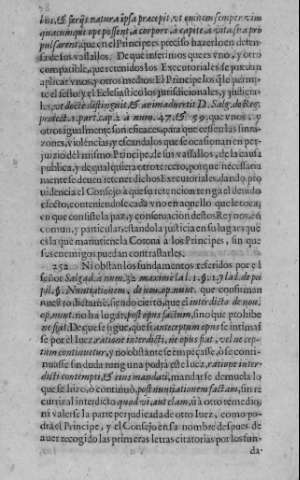 bus, & ferè que natura ipsa præcepit, vt quicem semper vim
quacunque ope possent, a corpore, à capite, à vita sua pro
pulsarent, que en el Principe es preciso hazerlo en defen-
sa de sus vassallos. De que inferimos que es vno, y otro
compatible, que retenidos los Executoriales se passen a
aplicar vnos, y otros medios: El Principe los
te el sello y el Eclesiastico los jurisdicionales, y judicia-
les, vt docte distinguit, & animaduertit D. Salg. de Reg.
protect. 2. part. cap. 2. à num. 47. & 59. que vnos, y
otros igualmente son eficaces, para que cessen las sinra-
zones, violencias, y escandalos que se ocasionan en per-
juyzio del mismo Principe, de sus vassallos, de la causa
publica, y de qualquiera otro tercero, porque necessaria
mente se deuen retener dichos Executoriales, dando pro
uidencia el Consejo à que su retencion tenga el deuido
efecto, conteniendose cada vno en aquello que le toca,
en que consiste la paz, y conseruacion destos Reynos, en
comun, y particular, estando la justicia en su lugar, que
es la que mantiene la Corona a los Principes, sin que
sus enemigos puedan contrastarles.
252 Ni obstan los fundamentos referidos por el
señor Salgad. à num. 32 maxime la l. 1. §. 17 la l. de pu
pil. §. Nuntiationem, de nou. op. nunt. que confirman
nuestro dictamen, siendo cierto, que el interdicto de nou.
op. nunt. no ha lugar, post opus factum, sino que prohibe
ne fiat. De que se sigue, que si anteceptum opus se intimasse
se por el Iuez, ratione interdicti, ne opus fiat, vel ne cep-
tum continuetur, y no obstante se empeçasse, ò se conti-
nuasse sin duda ninguna podrà este Iuez, ratione inter-
dicti contempti, & eius mandati, mandar se demuela lo
que se hizo, ò continuò, post nuntiationem factam, sin re
currir al interdicto quod vi, aut clam, ù à otro remedio,
ni valerse la parte perjudicada de otro Iuez, como po-
drà el Principe, y el Consejo en su nombre despues de
auer recogido las primeras letras citatorias por los fun-
da-